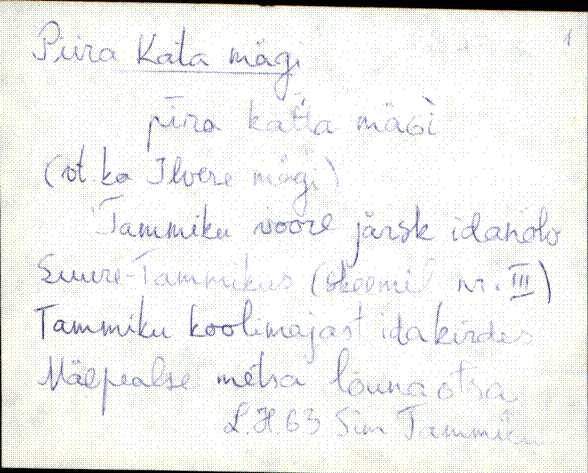 1
Piira Kata mägi
pīra kat̀t̀a mäGì
(vt. ka Ilvere mägi)
Tammiku voore järsk idanõlv
Suure-Tammikus (skeemil nr. III)
Tammiku koolimajast idakirdes
Mäepealse metsa lõunaotsa
L.H. 63 Sim Tammiku